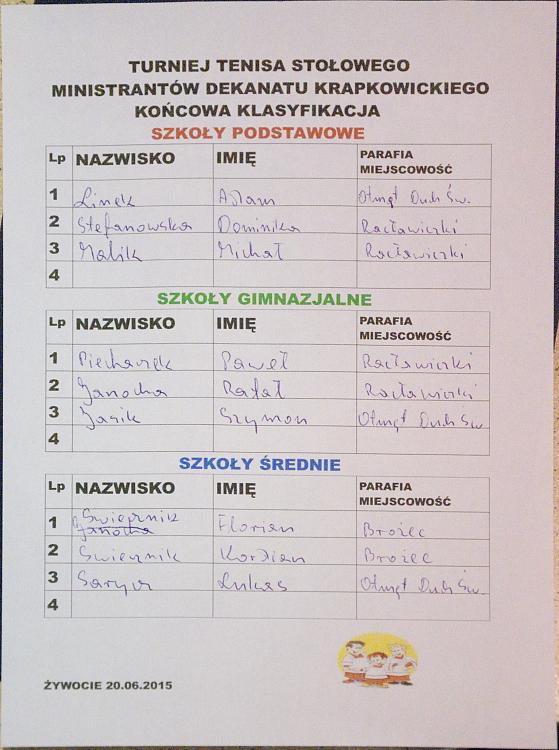 TURNIEJ TENISA STOŁOWEGO
MINISTRANTÓW DEKANATU KRAPKOWICKIEGO
KOŃCOWA KLASYFIKACJA
SZKOŁY PODSTAWOWE
Lp NAZWISKO IMIĘ PARAFIA MIEJSCOWOŚĆ
1 Linek Adam Otmęt Duch Św.
2 Stefanowska Dominika Racławiczki
3 Malik Michał Racławiczki
4
SZKOŁY GIMNAZJALNE
Lp NAZWISKO IMIĘ PARAFIA MIEJSCOWOŚĆ
1 Piechaczek Paweł Racławiczki
2 Janocha Rafał Racławiczki
3 Jasik Szymon Otmęt Duch Św.
4
SZKOŁY ŚREDNIE
Lp NAZWISKO IMIĘ PARAFIA MIEJSCOWOŚĆ
1 Swiernik Florian Brożec
Janocha
2 Swiernik Kordian Brożec
3 Lukas Otmęt Duch Św.
4
ŻYWOCIE 20.06.2015